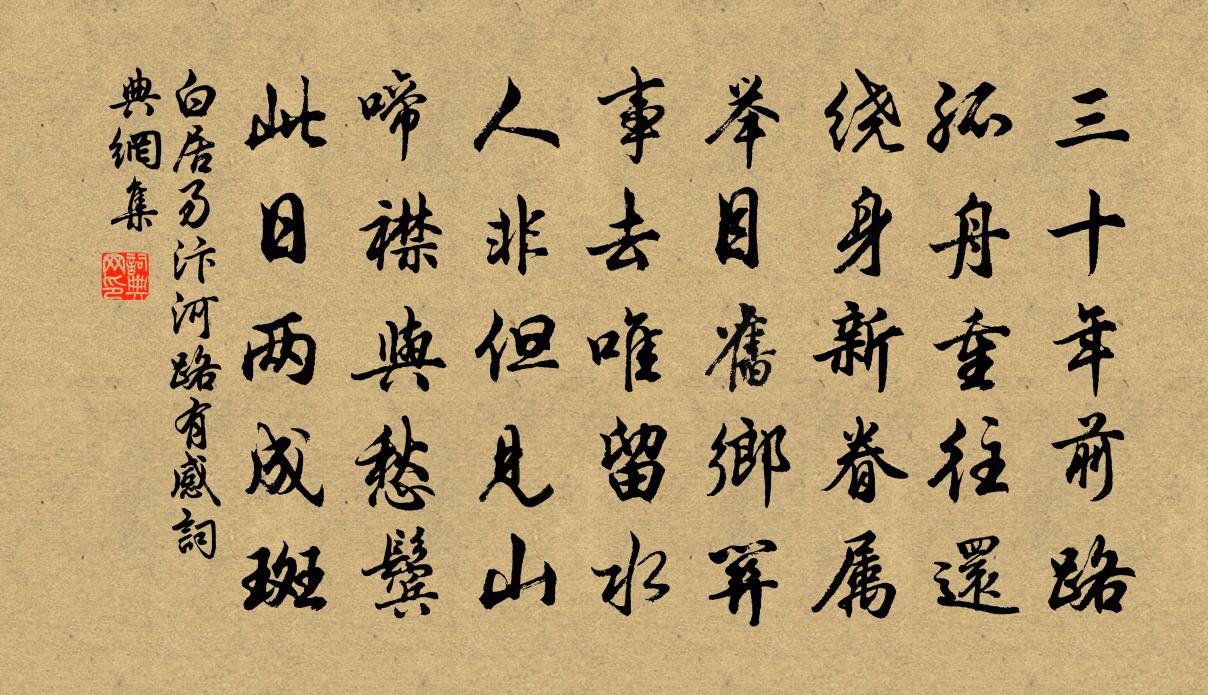 三十年前路
孤舟重往還
绕身新眷属
举目舊鄉関
事去唯留水
人非但見山
啼襟與愁鬓
此日两成斑
白居易汴河路有感詞
典網集
詞典
网印